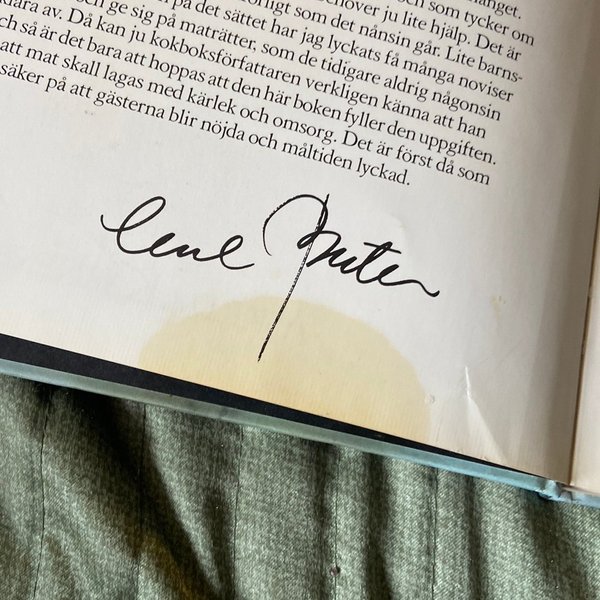 och som tycker om
behöver ju lite hjälp. Det är
som det nånsin går. Lite barns-
på det sättet har jag lyckats få många noviser
ge sig på maträtter, som de tidigare aldrig någonsin
klara av. Då kan ju kokboksförfattaren verkligen känna att han
ch så är det bara att hoppas att den här boken fyller den uppgiften.
att mat skall lagas med kärlek och omsorg. Det är först då som
säker på att gästerna blir nöjda och måltiden lyckad.